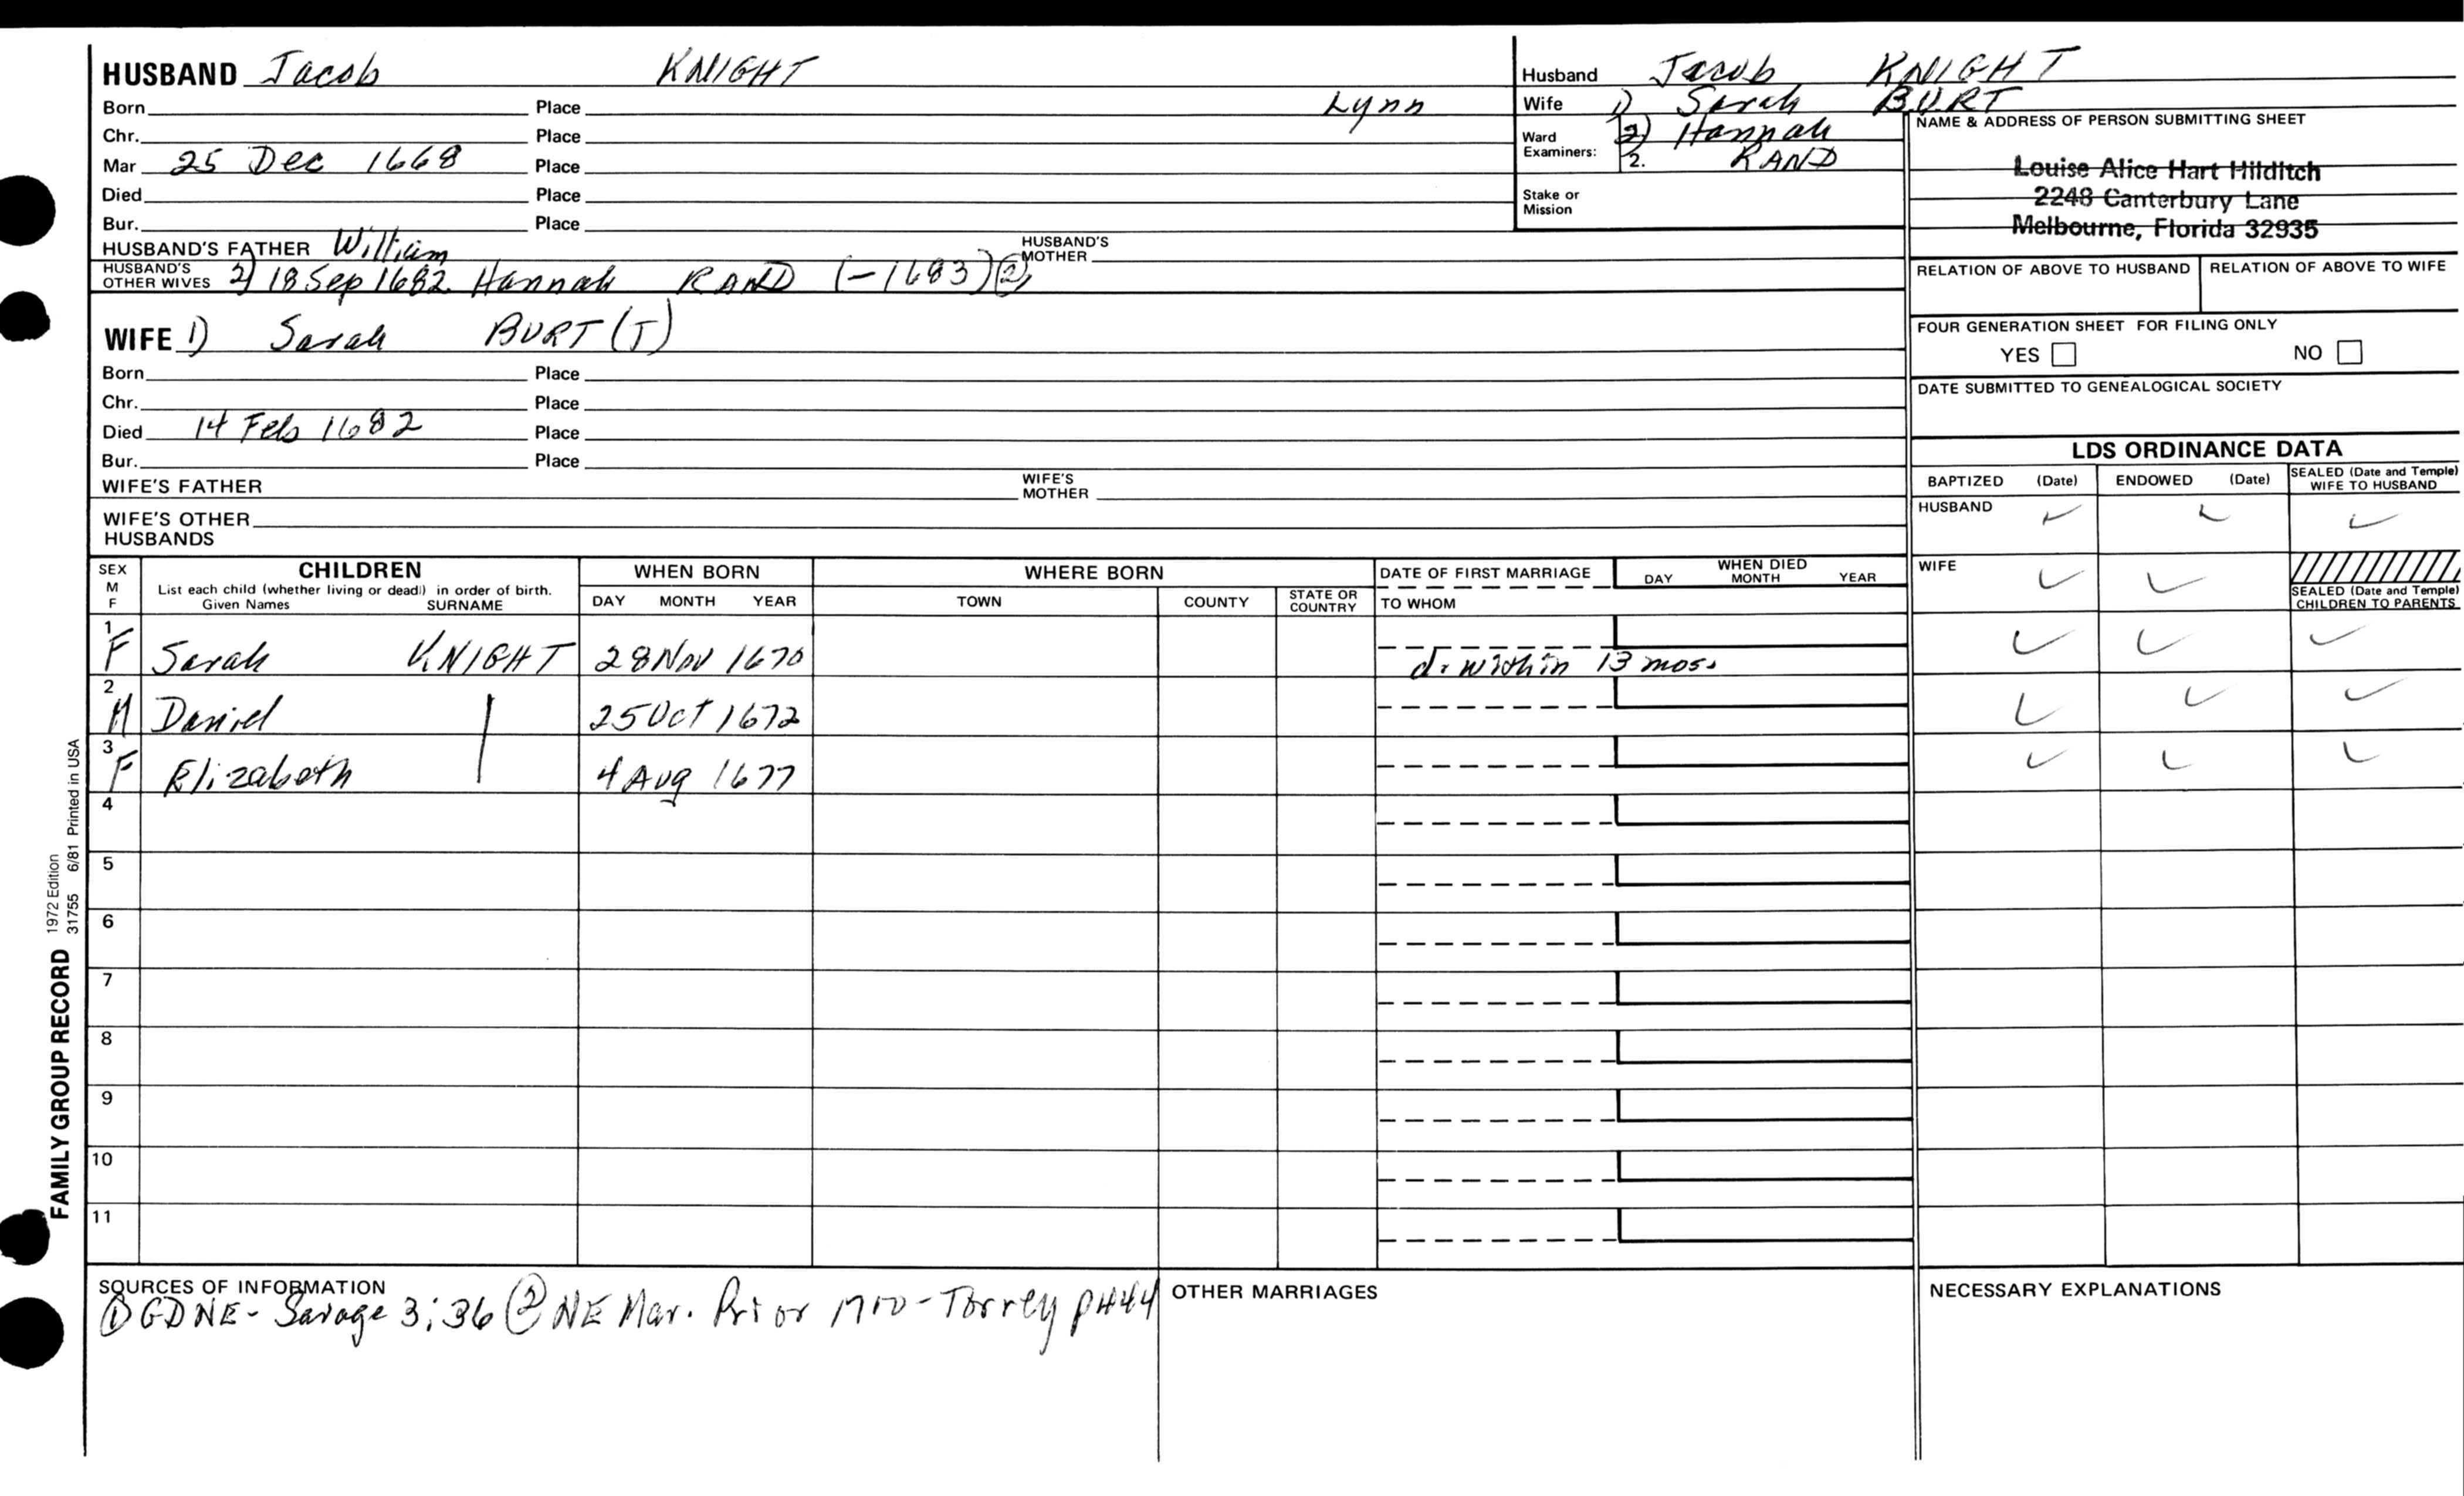 HUSBAND Jacob KNIGHT
Born Place Lynn
Chr. Place
Mar 25 Dec 1668 Place
Died Place
Bur. Place
HUSBAND'S FATHER William HUSBAND'S MOTHER
HUSBAND'S OTHER WIVES 2) 18 Sep 1682 Hannah RAND (-1683) ②
WIFE 1) Sarah BURT (J)
Born Place
Chr. Place
Died 14 Feb 1682 Place
Bur. Place
WIFE'S FATHER WIFE'S MOTHER
WIFE'S OTHER HUSBANDS
Husband Jacob KNIGHT
Wife 1) Sarah BURT
Ward Examiners: 2) Hannah
2. RAND
Stake or Mission
NAME & ADDRESS OF PERSON SUBMITTING SHEET
Louise Alice Hart Hilditch
2248 Canterbury Lane
Melbourne, Florida 32935
RELATION OF ABOVE TO HUSBAND RELATION OF ABOVE TO WIFE
FOUR GENERATION SHEET FOR FILING ONLY
YES NO
DATE SUBMITTED TO GENEALOGICAL SOCIETY
LDS ORDINANCE DATA
BAPTIZED (Date) ENDOWED (Date) SEALED (Date and Temple) WIFE TO HUSBAND
HUSBAND ✓ ✓ ✓
WIFE ✓ ✓
SEALED (Date and Temple) CHILDREN TO PARENTS
SEX M F CHILDREN WHEN BORN WHERE BORN DATE OF FIRST MARRIAGE WHEN DIED
List each child (whether living or dead) in order of birth.
Given Names SURNAME DAY MONTH YEAR TOWN COUNTY STATE OR COUNTRY TO WHOM DAY MONTH YEAR
1 F Sarah KNIGHT 28 Nov 1670 d. within 13 mos. ✓ ✓ ✓
2 M Daniel | 25 Oct 1672 ✓ ✓ ✓
3 F Elizabeth 4 Aug 1677 ✓ ✓ ✓
4
5
6
7
8
9
10
11
SOURCES OF INFORMATION
① GDNE - Savage 3:36 ② NE Mar. Prior 1700 - Torrey p444
OTHER MARRIAGES
NECESSARY EXPLANATIONS
FAMILY GROUP RECORD
1972 Edition
31755 6/81 Printed in USA